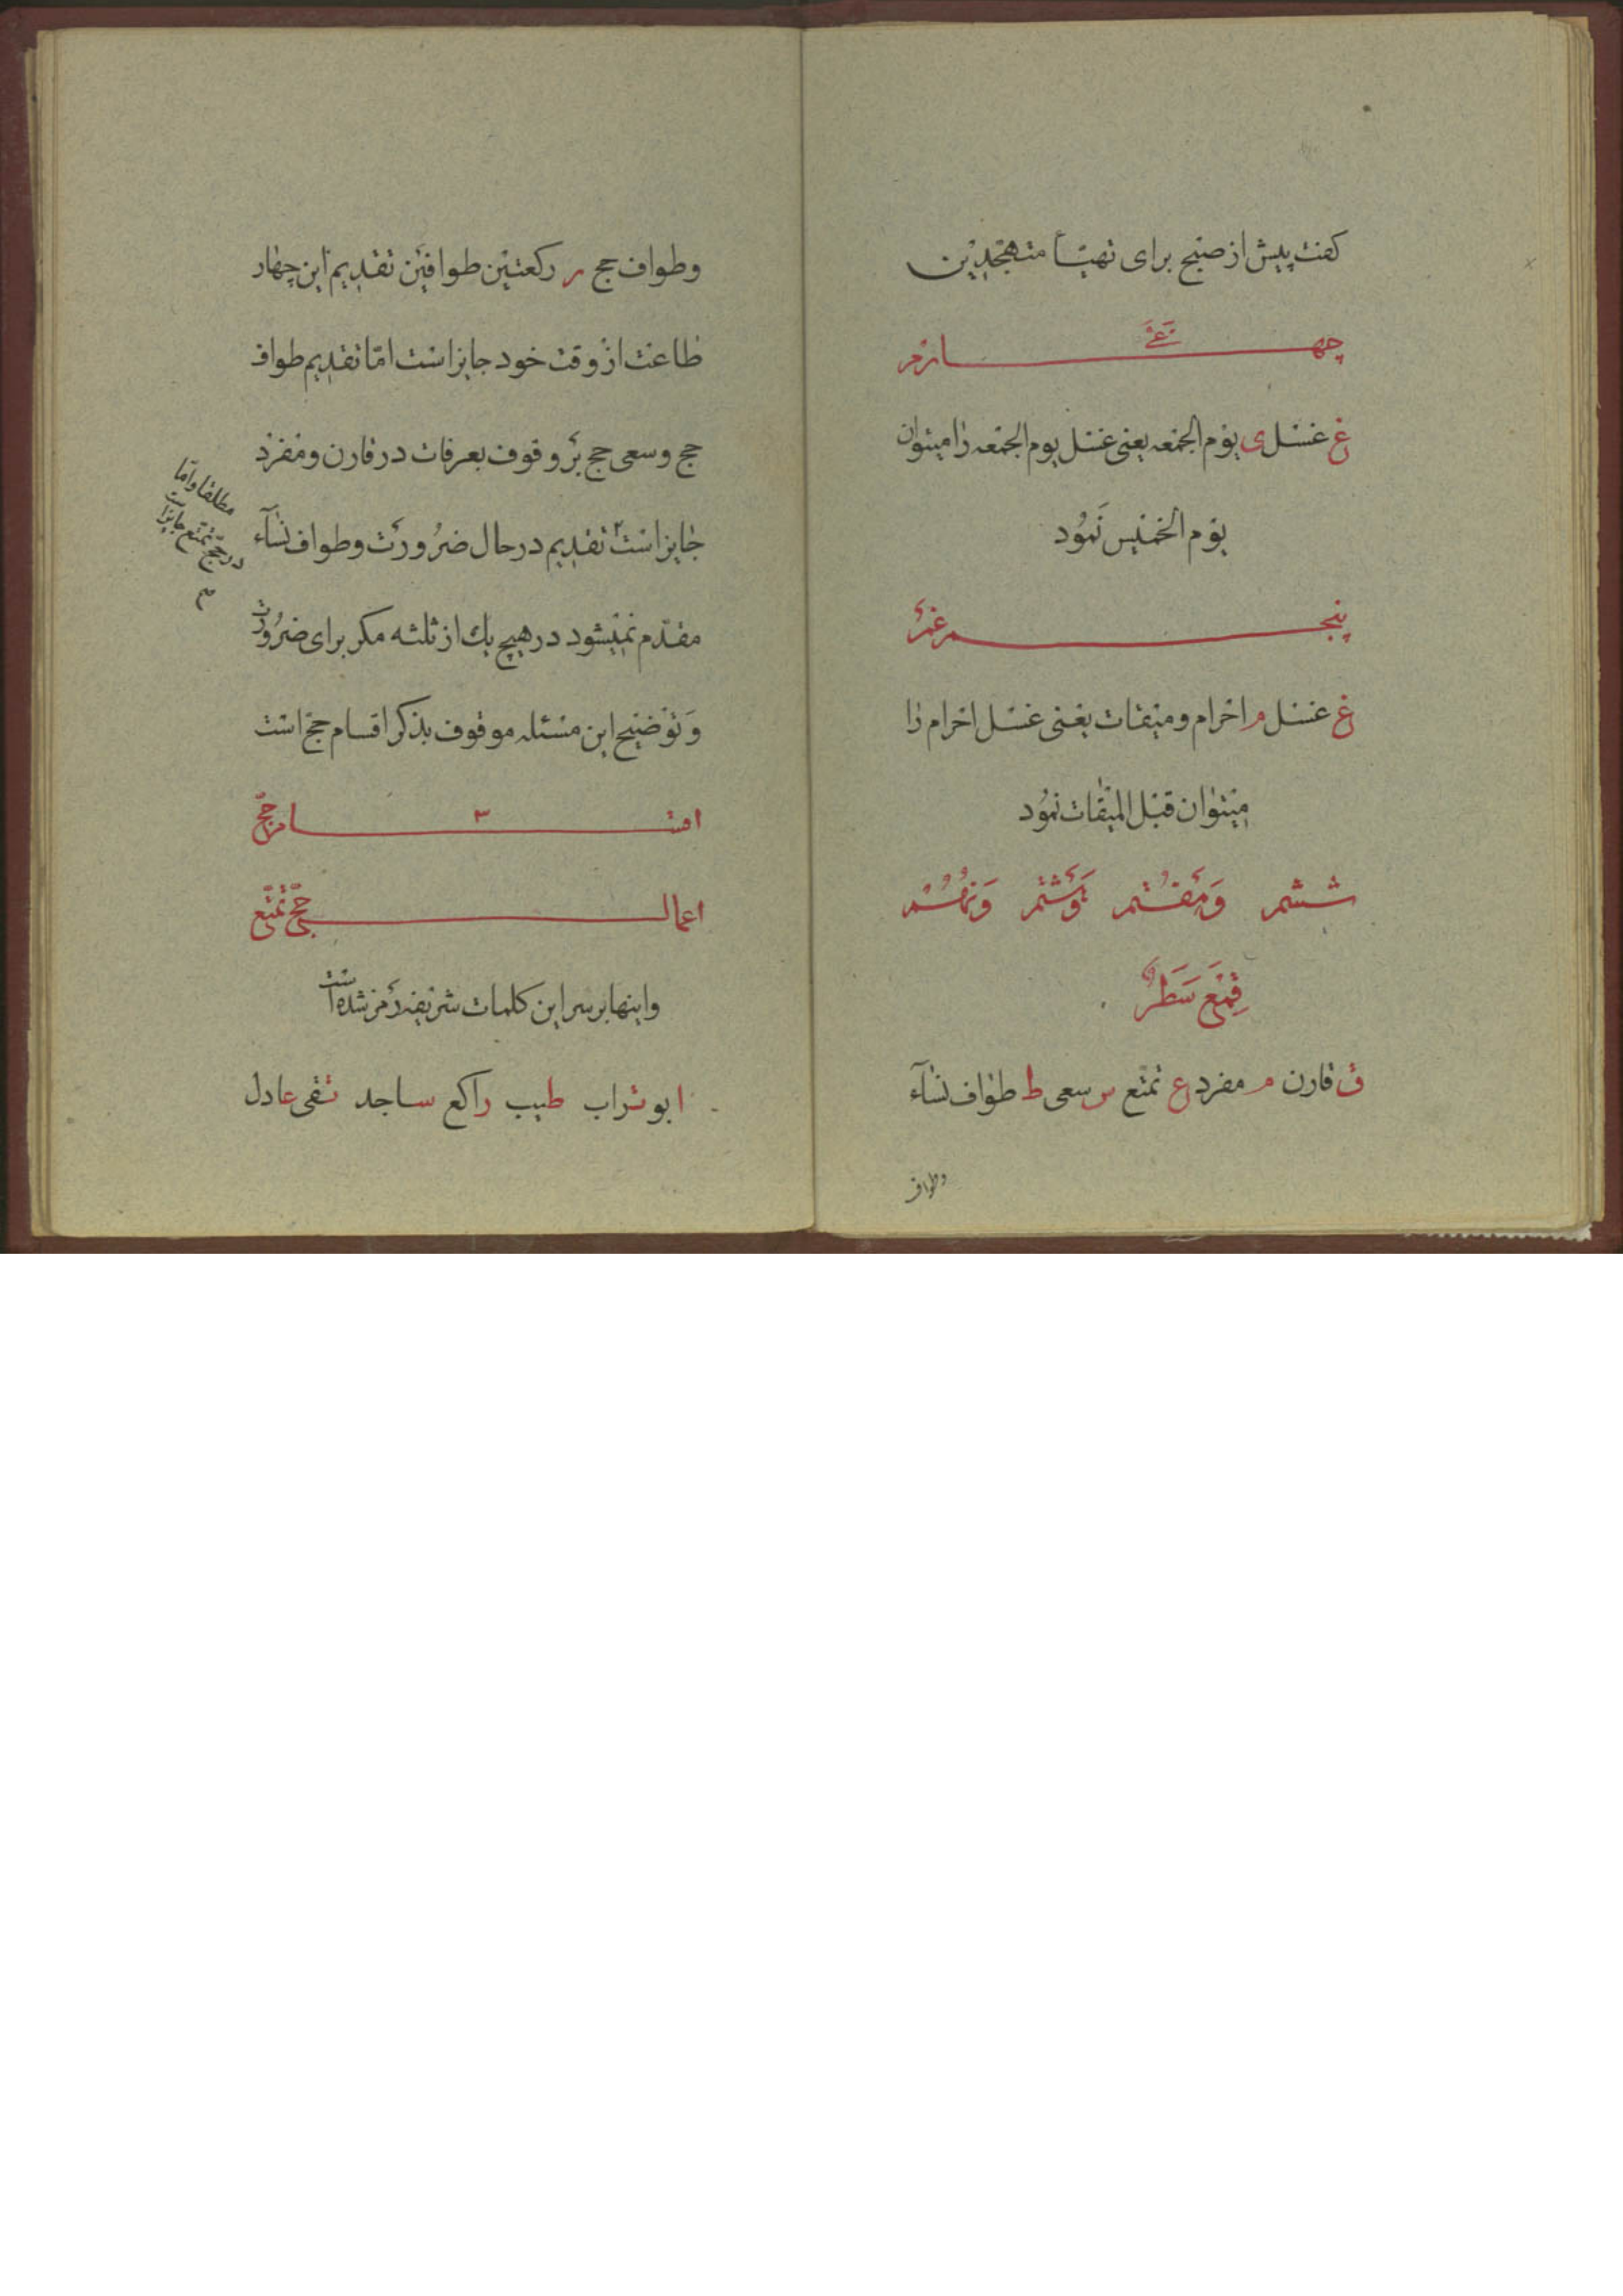 کفت پیش از صبح برای تهیّأ متهجّدین
چهارم غی
غ غسل ی یوم الجمعه یعنی غسل یوم الجمعه را میتوان
یوم الخمیس نمود
پنجم غم
غ غسل م احرام و میقات یعنی غسل احرام را
میتوان قبل المیقات نمود
ششم وهفتم وهشتم ونهم
قمع سطر
ق قارن م مفرد ع تمتع س سعی ط طواف نسآء
وطواف
وطواف حج ر رکعتین طوافین تقدیم این چهار
طاعت از وقت خود جایز است امّا تقدیم طواف
حج وسعی حج بر وقوف بعرفات در قارن ومفرد
جایز است تقدیم در حال ضرورت وطواف نسآء
مطلقا وامّا
در حجّ تمتّع جایز است
مقدّم نمیشود در هیچ یك از ثلثه مکر برای ضرورت
وتوضیح این مسئله موقوف بذکر اقسام حج است
اقسام حجّ ٣
اعمال حجّ تمتّع
واینها بر سر این کلمات شریفه رمز شده است
ابو تراب طیب راکع ساجد تقی عادل